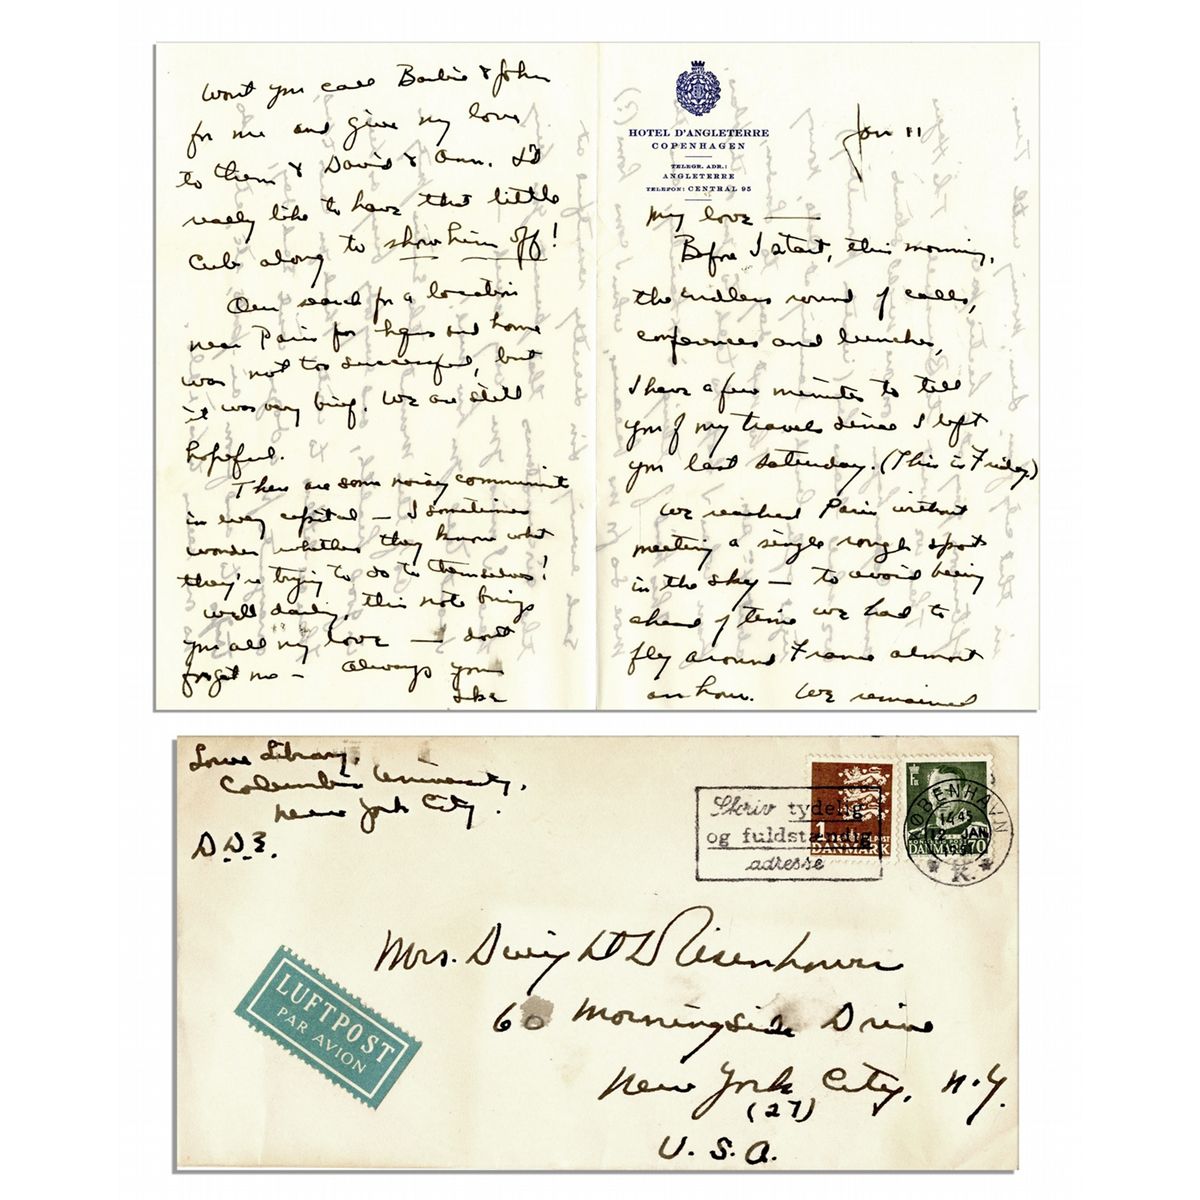 Won't you call Barbie & John
for me and give my love
to them & David & Ann. I'd
really like to have that little
cub along to show him off!
Our search for a location
near Paris for hqrs and home
was not too successful, but
it was very brief. We are still
hopeful.
There are some noisy communists
in every capital — I sometimes
wonder whether they know what
they're trying to do to themselves!
Well darling, this note brings
you all my love — don't
forget me — Always your
Ike
HOTEL D'ANGLETERRE
COPENHAGEN
TELEGR. ADR.:
ANGLETERRE
TELEFON: CENTRAL 95
Jan 11
My love —
Before I start, this morning,
the endless round of calls,
conferences and lunches,
I have a few minutes to tell
you of my travels since I left
you last Saturday. (This is Friday)
We reached Paris without
meeting a single rough spot
in the sky — to avoid being
ahead of time we had to
fly around France almost
an hour. We remained
Low Library,
Columbia University,
New York City.
D.D.E.
Skriv tydelig
og fuldstændig
adresse
1
DANMARK
DANMARK 70
KØBENHAVN
14.45
12. JAN
1951
K.
LUFTPOST
PAR AVION
Mrs. Dwight D Eisenhower
60 Morningside Drive
New York City, N.Y.
(27)
U.S.A.